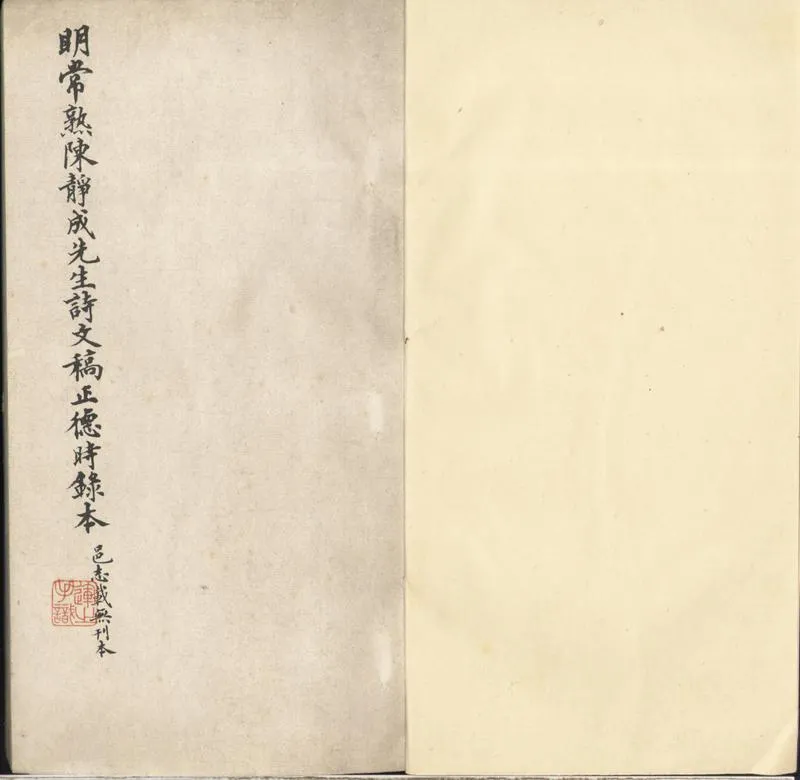 明常熟陳靜成先生詩文稿正德時錄本
邑志載無刊本